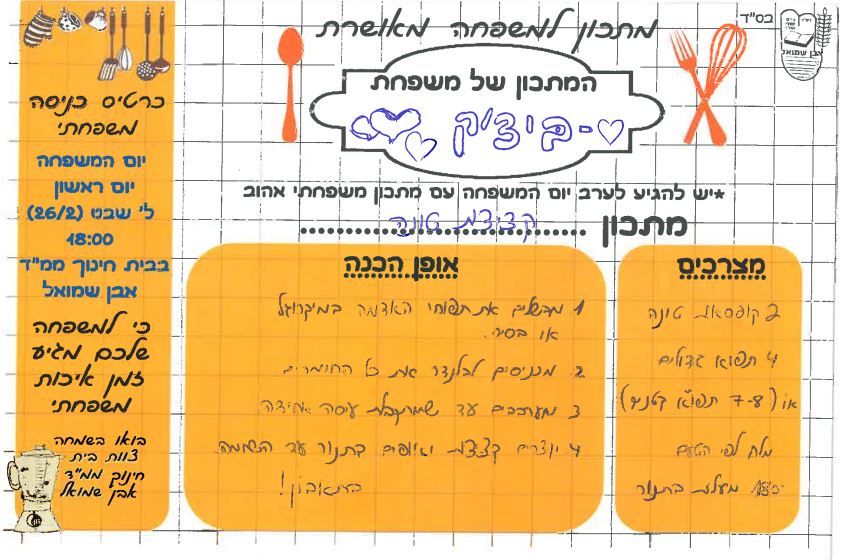 בס"ד
אבן שמואל
מתכון למשפחה מאושרת
המתכון של משפחת
ביצ'ק
*יש להגיע לערב יום המשפחה עם מתכון משפחתי אהוב
מתכון קציצת טונה
מצרכים
2 קופסאות טונה
4 תפוא גדולים
או (7-8 תפוא קטנים)
מלח לפי הטעם
180 מעלות בתנור
אופן הכנה
1 מבשלים את תפוחי האדמה במיקרוגל
או בסיר.
2. מכניסים לבלנדר את כל החומרים.
3 מערבבים עד שמתקבלת עיסה אחידה
4 יוצרים קציצות ואופים בתנור עד הזהמה
בתאבון!
כרטיס כניסה
משפחתי
יום המשפחה
יום ראשון
ל' שבט (26/2)
18:00
בבית חינוך ממ"ד
אבן שמואל
כי למשפחה
שלכם מגיע
זמן איכות
משפחתי
בואו בשמחה
צוות בית
חינוך ממ"ד
אבן שמואל